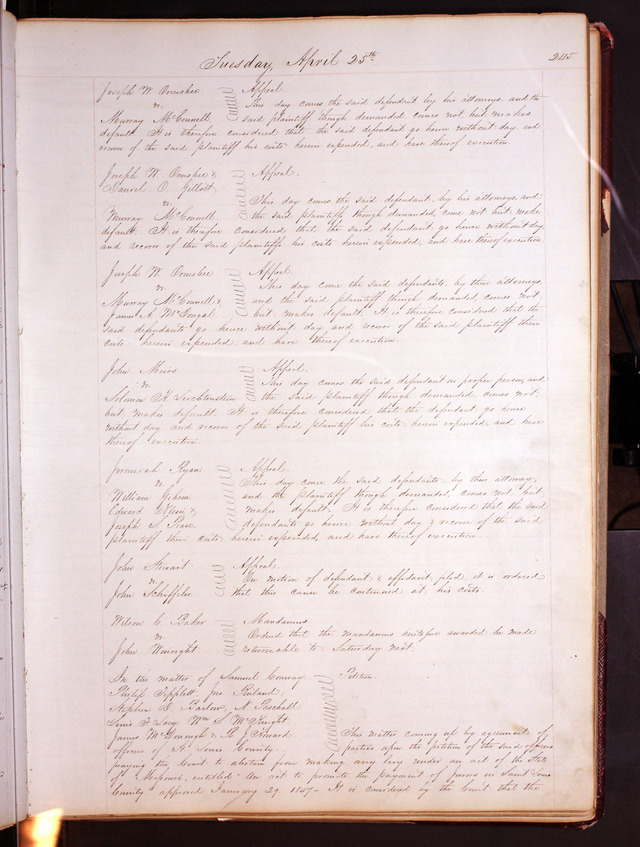 Tuesday, April 25th 245
Joseph W. Ormsbee Appeal
vs. This day comes the said defendant by his attorneys, and the
Murray McConnell said plaintiff though demanded comes not but makes
default. It is therefore considered that the said defendant go hence without day, and
recover of the said plaintiff his costs herein expended, and have thereof execution.
Joseph W. Ormsbee & Appeal.
Daniel O.
vs. This day comes the said defendant, by his attorneys, and
Murray McConnell, the said plaintiffs though demanded, come not but make
default. It is therefore considered that the said defendant go hence without day
and recover of the said plaintiffs his costs herein expended, and have thereof execution.
Joseph W. Ormsbee Appeal
vs. This day come the said defendants, by their attorneys,
Murray McConnell & and the said plaintiff though demanded, comes not
James A. McDougal but makes default. It is therefore considered that the
said defendants go hence without day and recover of the said plaintiff their
costs herein expended, and have thereof execution.
John Appeal.
vs. This day comes the said defendant in proper person, and
Solomon the said plaintiff though demanded comes not,
but makes default. It is therefore considered that the defendant go hence
without day and recover of the said plaintiff his costs herein expended, and have
thereof execution.
Jeremiah Ryan Appeal.
vs. This day come the said defendants, by their attorney,
William and the plaintiff though demanded, comes not but
Edward & makes default. It is therefore considered that the said
Joseph S. defendants go hence without day & recover of the said
plaintiff their costs herein expended, and have thereof execution.
John Stewart Appeal.
vs. On motion of defendant, & affidavit filed, it is ordered
John Scheffler that this cause be continued at his costs.
Wilson C. Baker Mandamus
vs. Ordered that the mandamus heretofore awarded be made
John Wainright returnable to Saturday next.
In the matter of Samuel Conway Petition
Philip Tippett, Jno. Ruland,
Stephen D. Barlow, N. Paschall
Louis T. Wm. S. McKnight
James McDonough & R. J. Howard This matter coming up by agreement of
officers of St. Louis County. parties upon the petition of the said officers
praying the Court to abstain from making any levy under an act of the State
of Missouri, entitled "An act to promote the payment of Jurors in Saint Louis
County" approved January 29, 1847 - It is considered by the Court that the